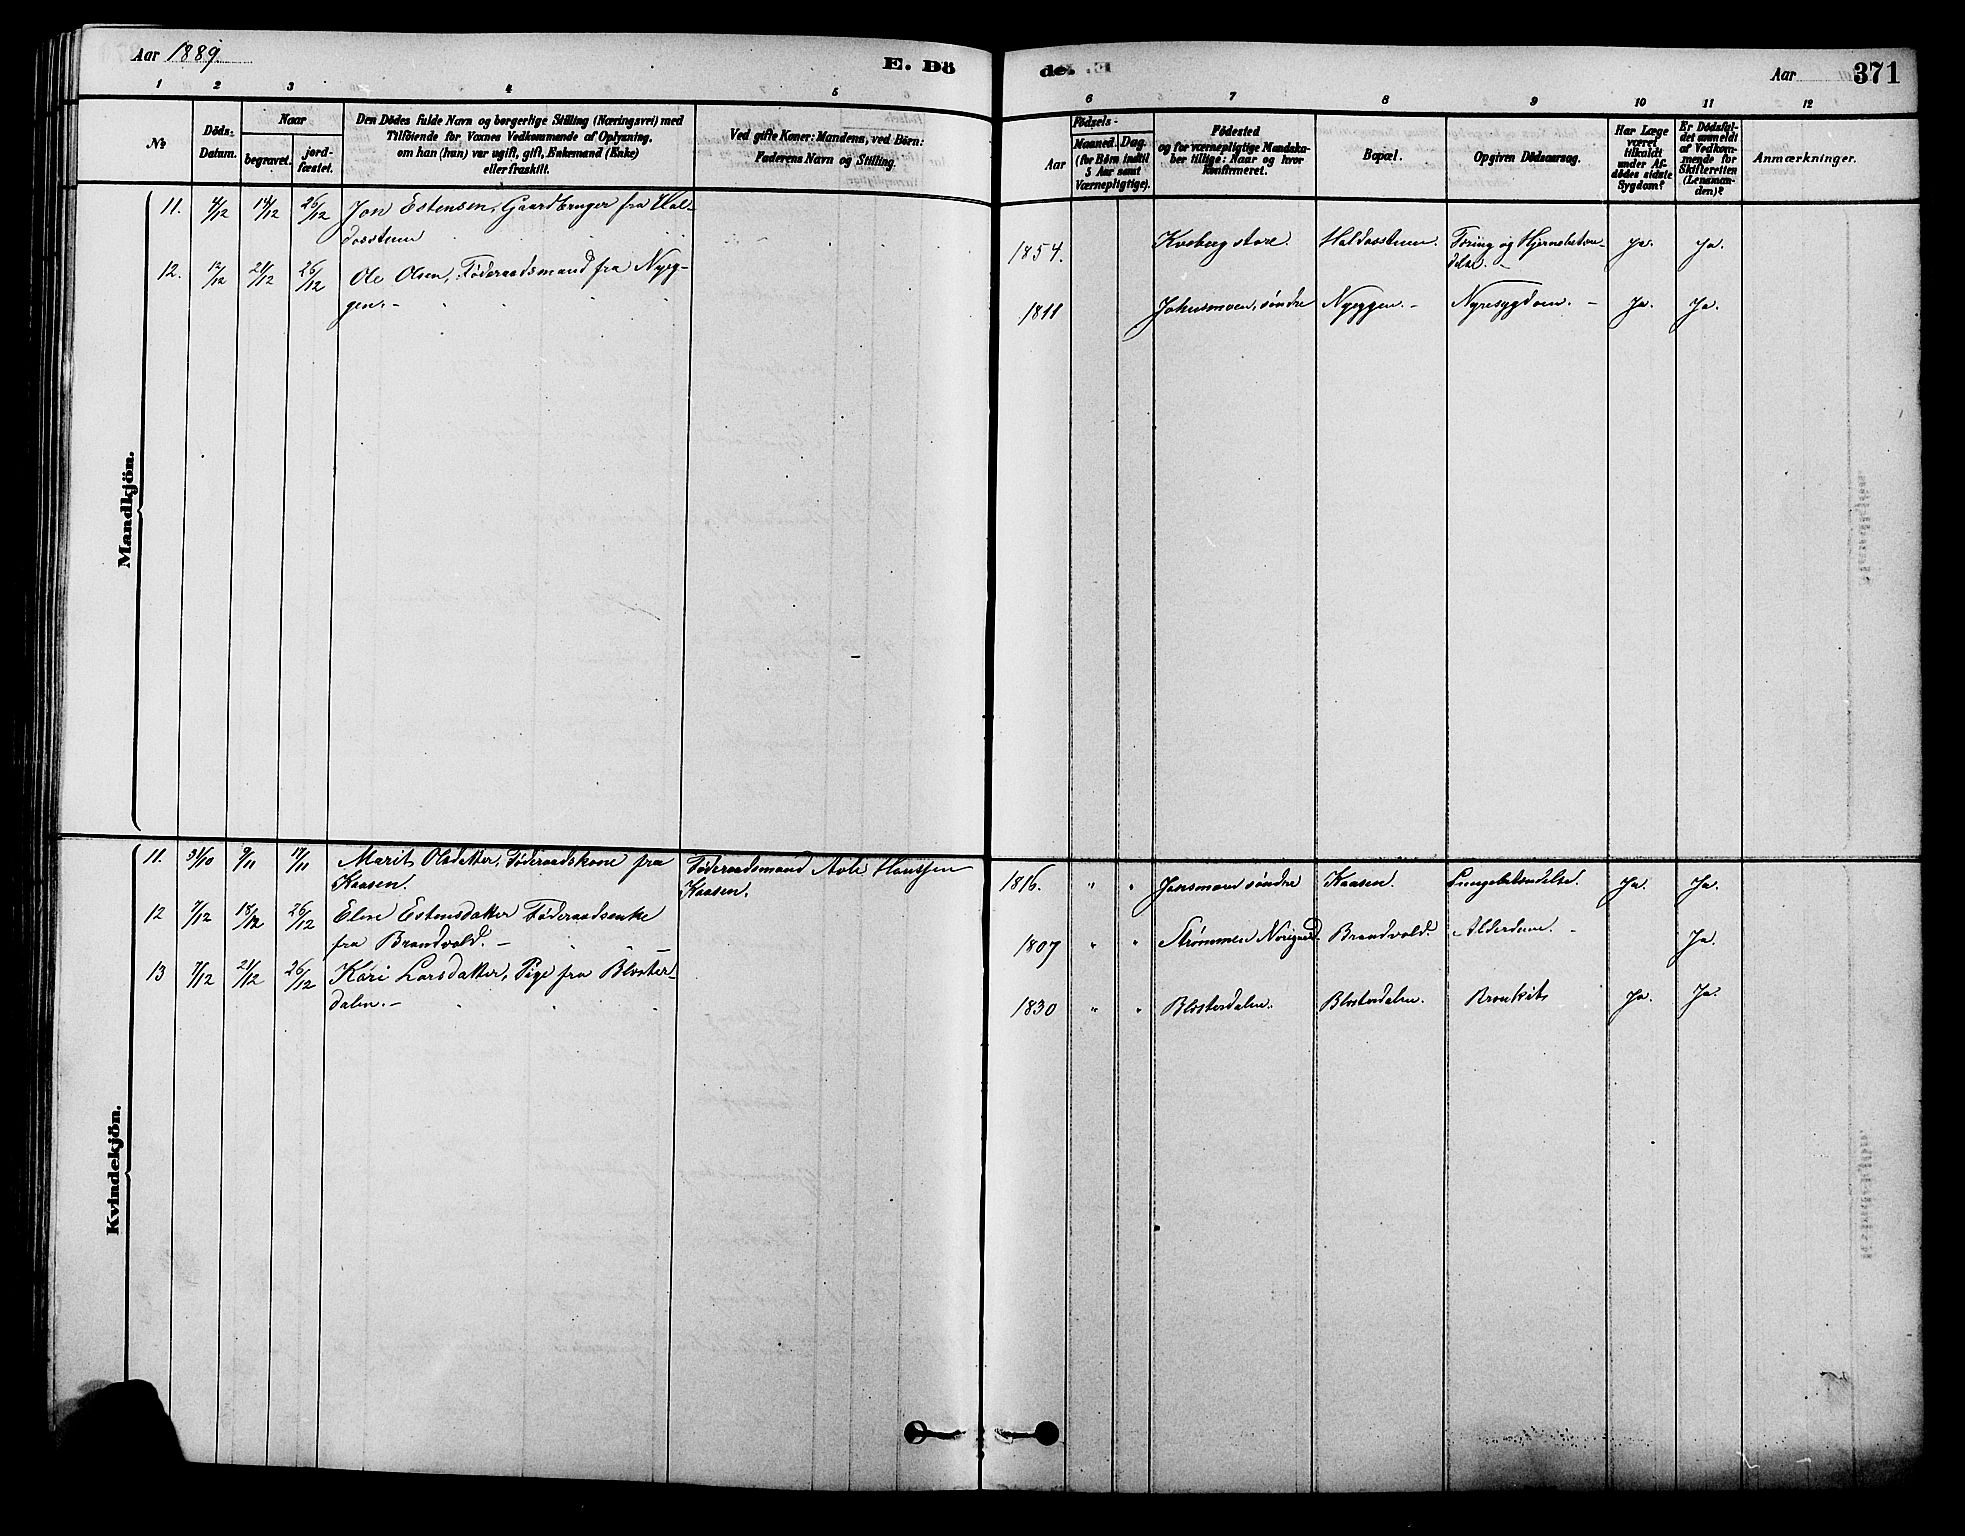 Aar 1889.
E. Dö
de.
Aar
371
1 2 3 4 5
6 7 8 9 10 11 12
No
Döds-
Datum.
Naar
begravet.
jord-
fæstet.
Den Dödes fulde Navn og borgerlige Stilling (Næringsvei) med
Tilföiende for Voxnes Vedkommende af Oplysning,
om han (hun) var ugift, gift, Enkemand (Enke)
eller fraskilt.
Ved gifte Koner: Mandens, ved Börn:
Faderens Navn og Stilling.
Födsels-
Aar
Maaned.
Dag.
(for Börn indtil
5 Aar samt
Værnepligtige).
Födested
og for værnepligtige Mandska-
ber tillige: Naar og hvor
konfirmeret.
Bopæl.
Opgiven Dödsaarsag.
Har Læge
været
tilkaldt
under Af-
dödes sidste
Sygdom?
Er Dödsfal-
det anmeldt
af Vedkom-
mende for
Skifteretten
(Lensman-
den)?
Anmærkninger.
Mandkjön.
11. 4/12 14/12 26/12 Jon Estensen, Gaardbruger fra Hal-
dosstuen
1854. Kveberg store. Haldosstuen. Tæring og Hjernebetæn-
delse. Ja. Ja.
12. 12/12 21/12 26/12 Ole Olsen, Föderaadsmand fra Nyeg-
gen.
1811 Johnsmoen, søndre Nyeggen. Nyresygdom. Ja. Ja.
Kvindekjön.
11. 31/10 9/11 17/11 Marit Olsdatter, Föderaadskone fra
Kaasen.
Föderaadsmand Hanssen
Kaasen.
1816. " " Jonsmoen søndre Kaasen. Lungebetændelse. Ja. Ja.
12 7/12 18/12 26/12 Eline Estensdatter Föderaadsenke
fra Brandvold.
1807 " " Strømmen Brandvold. Alderdom. Ja.
13 7/12 21/12 26/12 Kari Larsdatter, Pige fra Bloster-
dalen.
1830 " " Blosterdalen. Blosterdalen. Bronkit Ja. Ja.